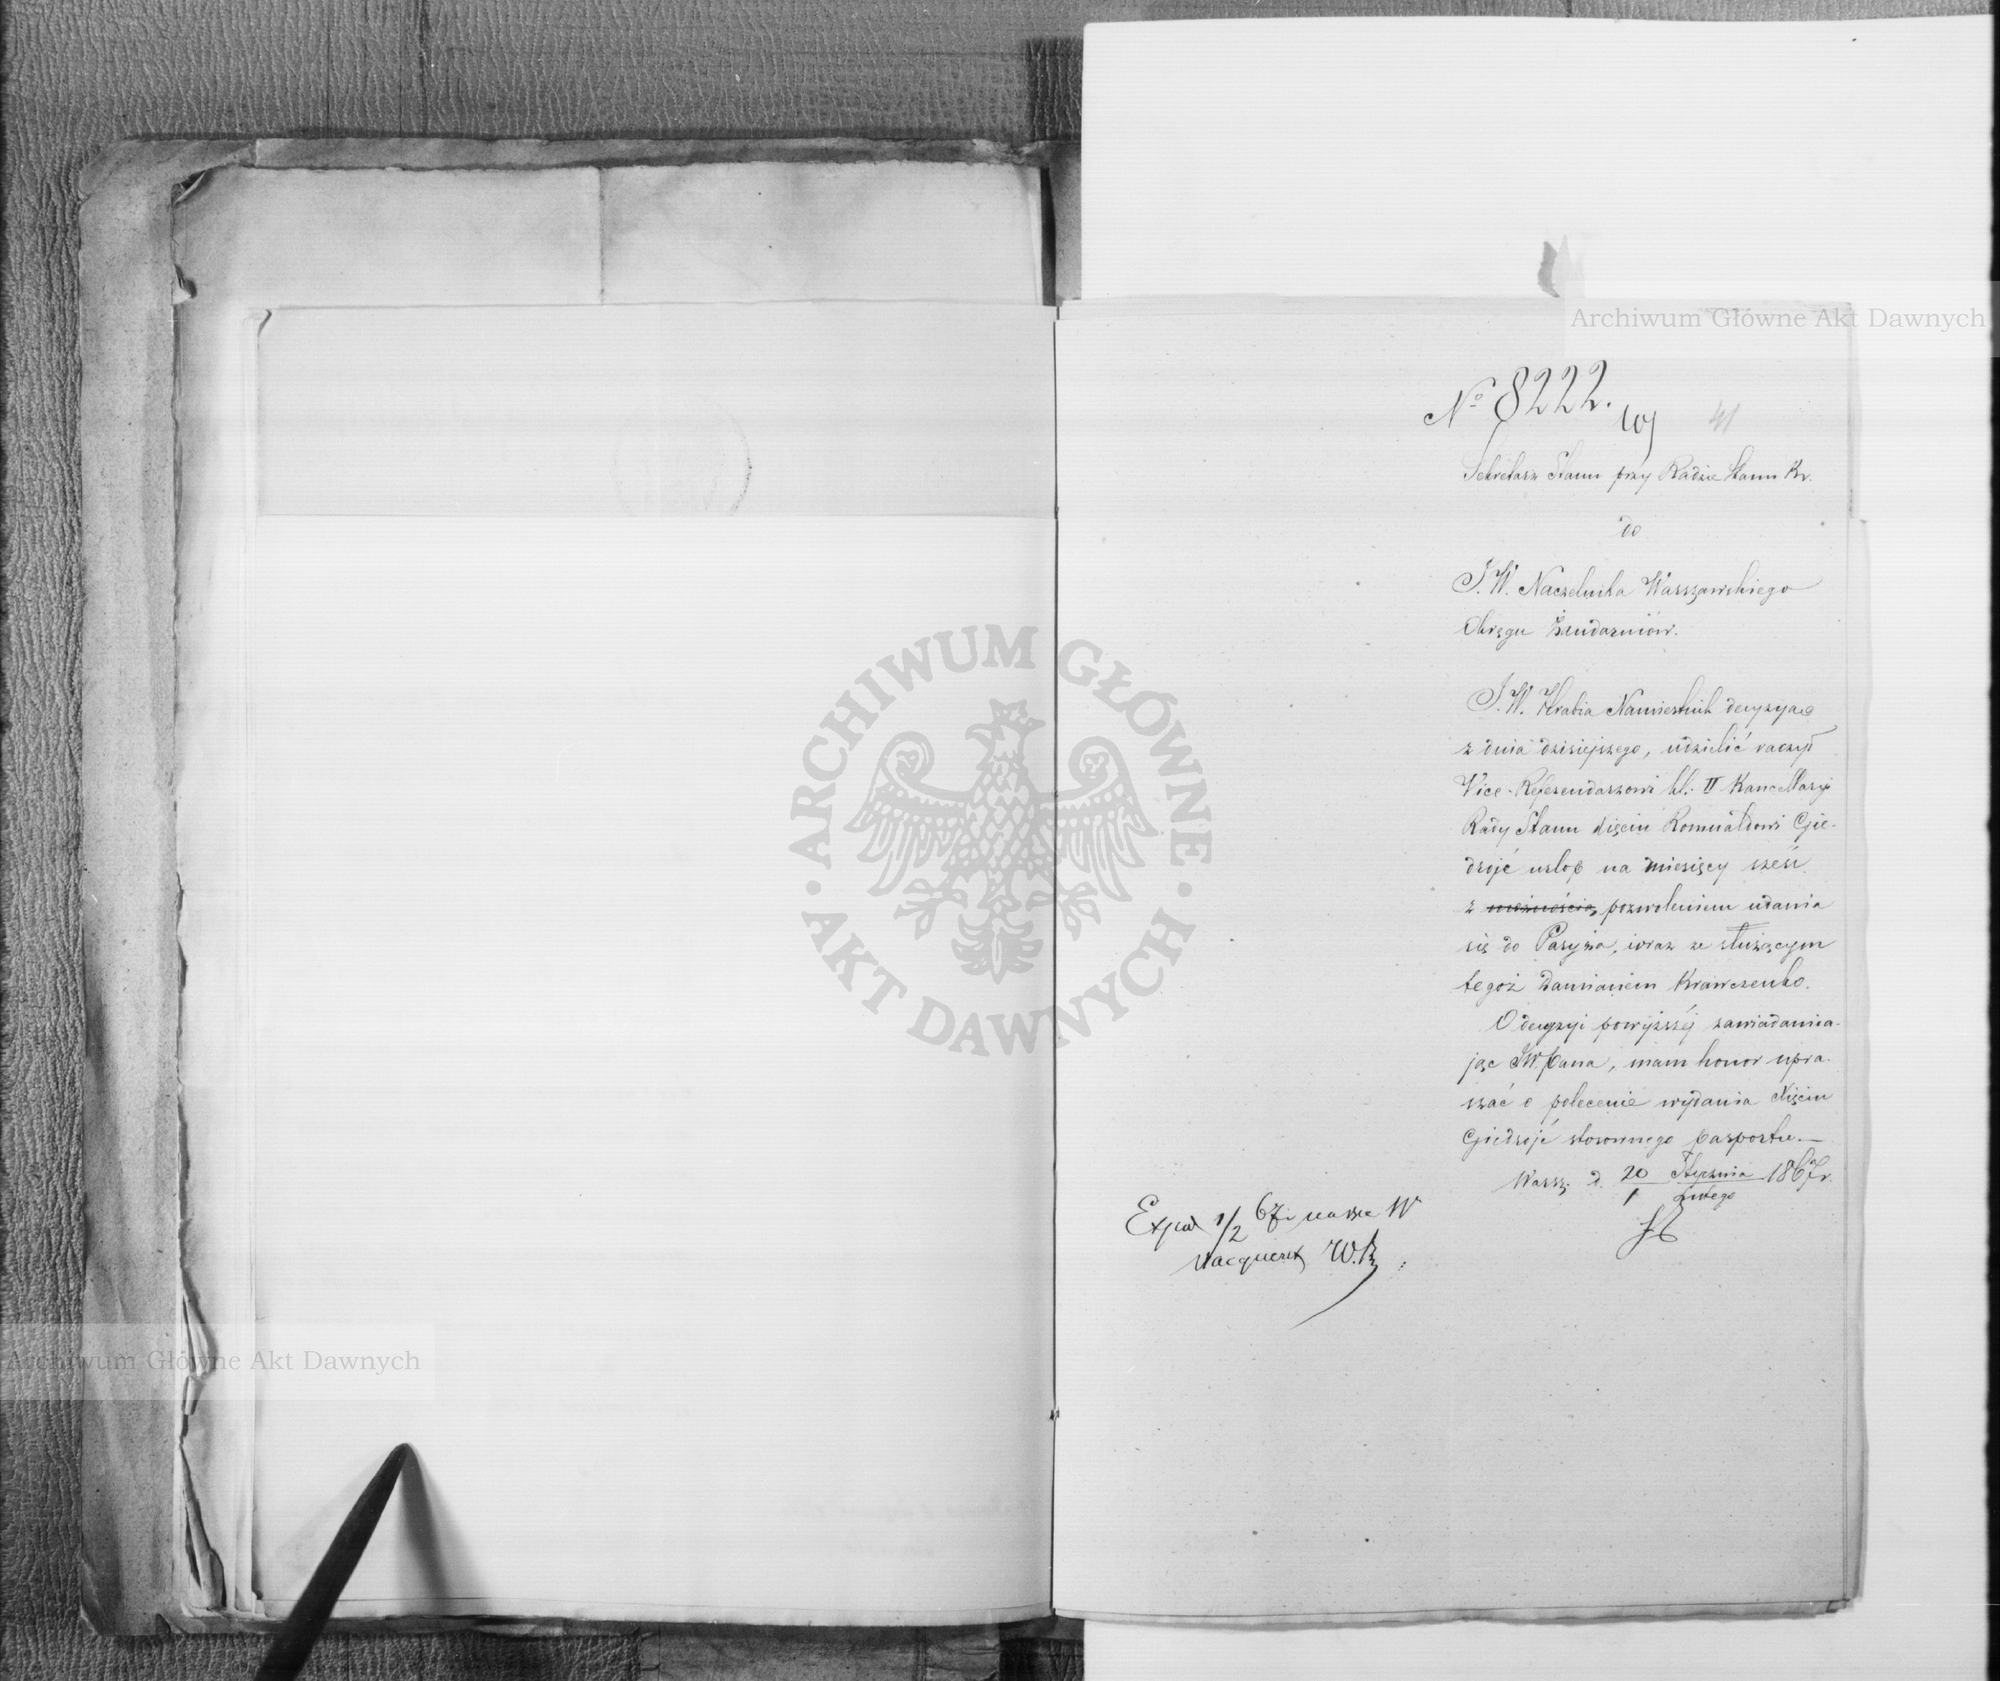 Archiwum Główne Akt Dawnych
Nº 8222.
41
Sekretarz Stanu przy Radzie Stanu Kr.
do
J.W. Naczelnika Warszawskiego
Okręgu Żandarmów.
J.W. Hrabia Namiestnik decyzyą
z dnia dzisiejszego, udzielić raczył
Vice-Referendarzowi kl. II Kancellaryi
Rady Stanu Xięciu Romualdowi Gie-
drojć urlop na miesięcy sześć
z możnością pozwoleniem udania
się do Paryża, wraz ze służącym
tegoż Damianem Krawczenko.
O decyzyi powyższéj zawiadamia-
jąc JW. Pana, mam honor upra-
szać o polecenie wydania Xięciu
Giedrojć stosownego pasportu.—
Warsz. d. 20 Stycznia / 1 Lutego 1867 r.
1/2 67
ARCHIWUM GŁÓWNE AKT DAWNYCH
Archiwum Główne Akt Dawnych